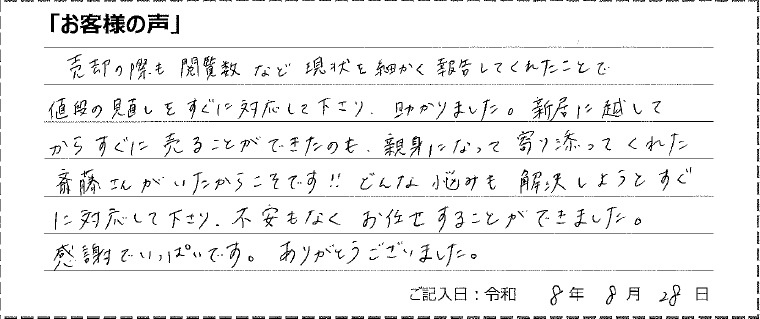 「お客様の声」
売却の際も 閲覧数 など 現状を細かく 報告してくれたことで
値段の見直しをすぐに対応して下さり、助かりました。新居に越して
からすぐに 売ることができたのも、親身になって 寄り添ってくれた
斎藤さんがいたからこそです!! どんな悩みも 解決しようとすぐ
に対応して下さり、不安もなく お任せすることができました。
感謝でいっぱいです。ありがとうございました。
ご記入日：令和 8年 8月 28日